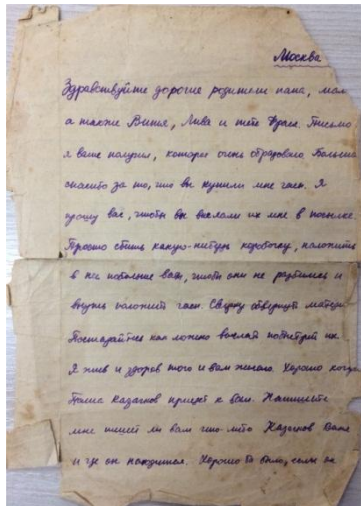 Москва
Здравствуйте дорогие родители папа, мам
а также Витя, Лива и тётя Фрося. Письмо
я ваше получил, которое очень обрадовало. Большое
спасибо за то, что вы купили мне часы. Я
прошу вас, чтобы вы выслали их мне в посылке.
Просто сшить какую-нибудь коробочку, наложить
в неё побольше ваты, чтобы они не разбились и
внутрь положить часы. Сверху обвернуть матери
Постарайтесь как можно выслать побыстрей их.
Я жив и здоров того и вам желаю. Хорошо когда
Казачков приедет к вам. Напишите
мне пишет ли вам что-либо Казачков Ваня
и где он находится. Хорошо бы было, если он